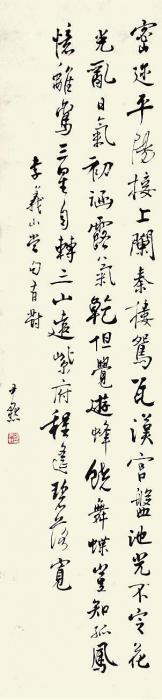 密迩平陽接上蘭秦樓鴛瓦漢宮盤池光不定花
光亂日氣初涵露氣乾但覺遊蜂饒舞蝶豈知孤鳳
憶離鸞三星自轉三山遠紫府程遙碧落寬
李義山當句有對
尹默